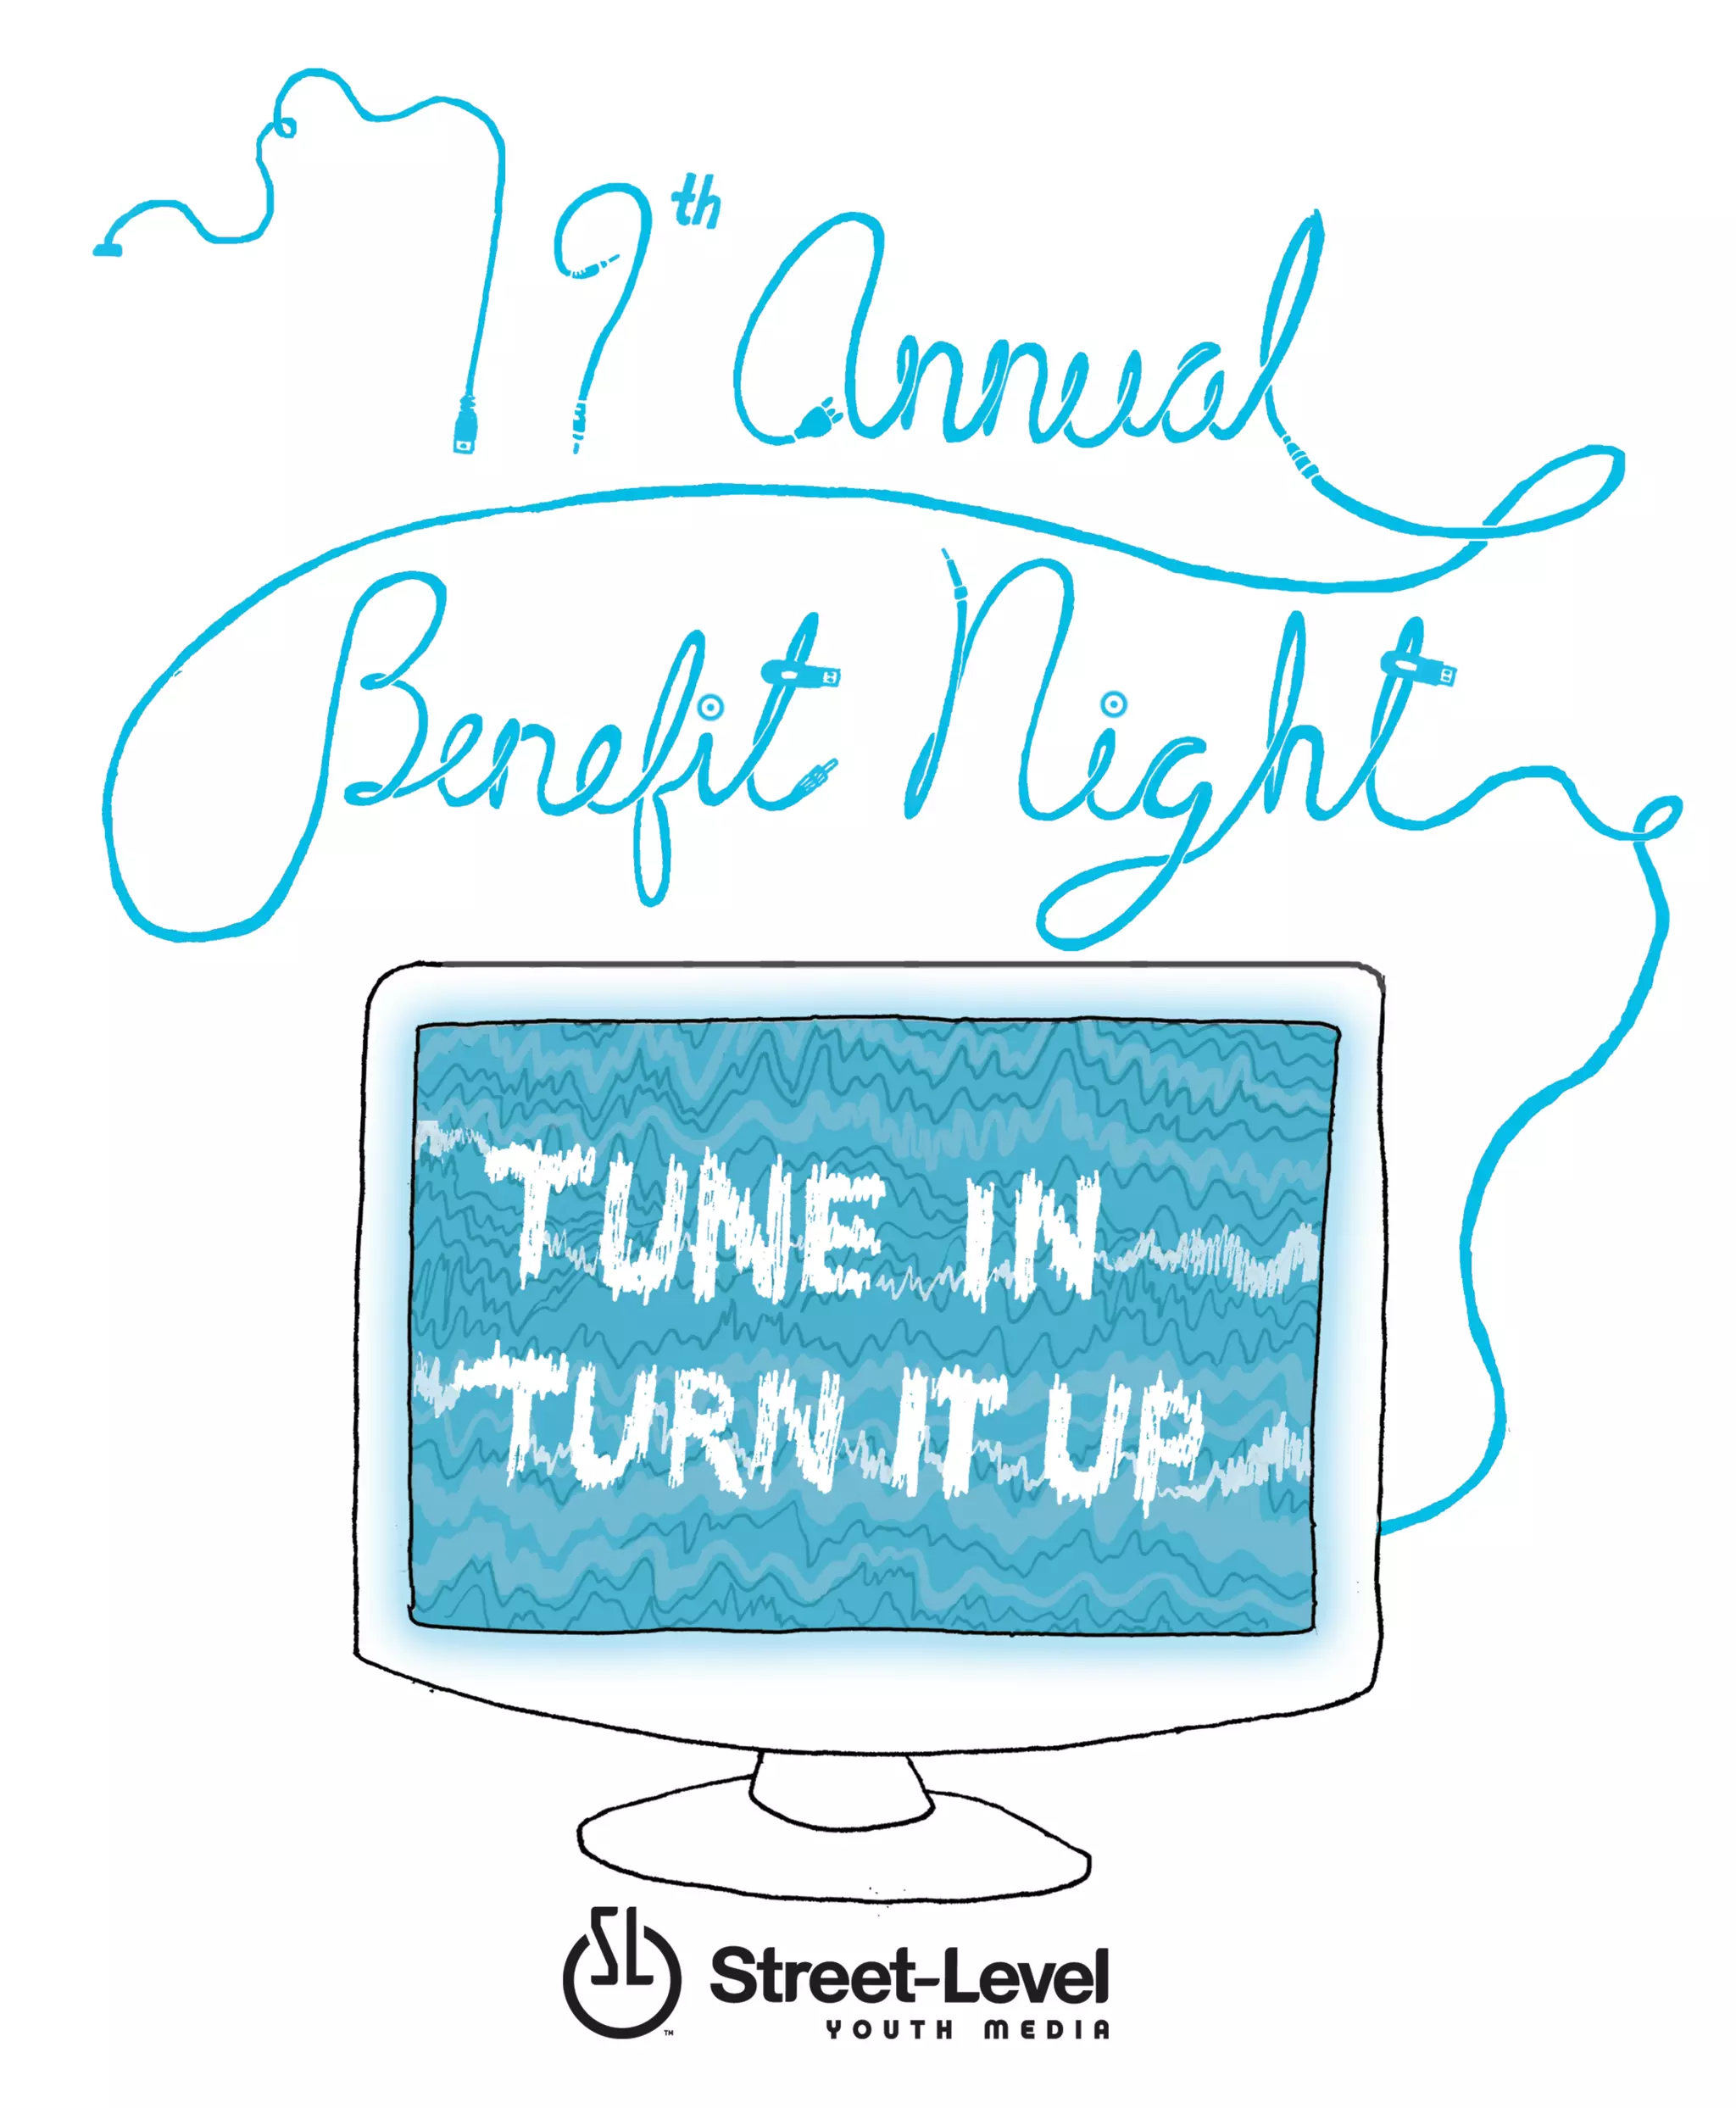 19th Annual
Benefit Night
TUNE IN
TURN IT UP
SL
Street-Level
YOUTH MEDIA
TM